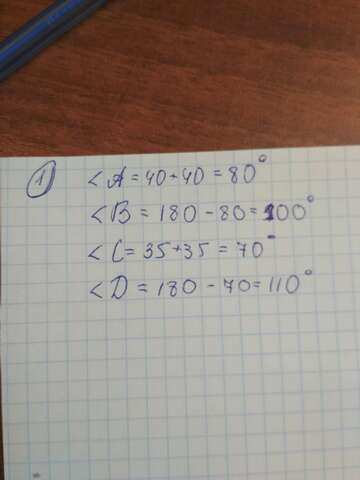 1) <A = 40 + 40 = 80°
<B = 180 - 80 = 100°
<C = 35 + 35 = 70°
<D = 180 - 70 = 110°